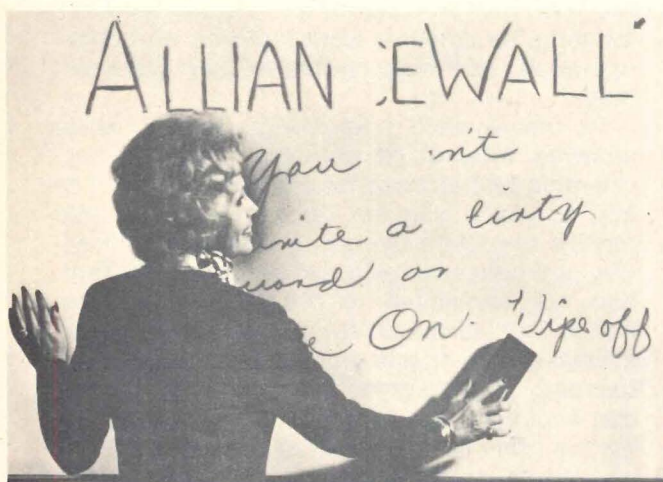 ALLIAN :EWALL
You n't
write a dirty
word on
On. Wipe off